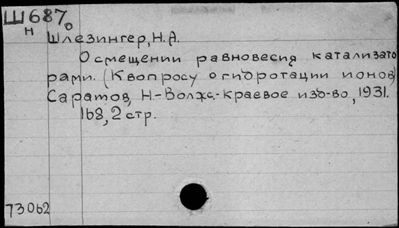 Ш687
н о
Шлезингер, Н.А.
О смещении равновесия катализато
рами. (К вопросу о гидротации ионов)
Саратов, Н-Волжс.-краевое изд-во, 1931.
168, 2 стр.
73062